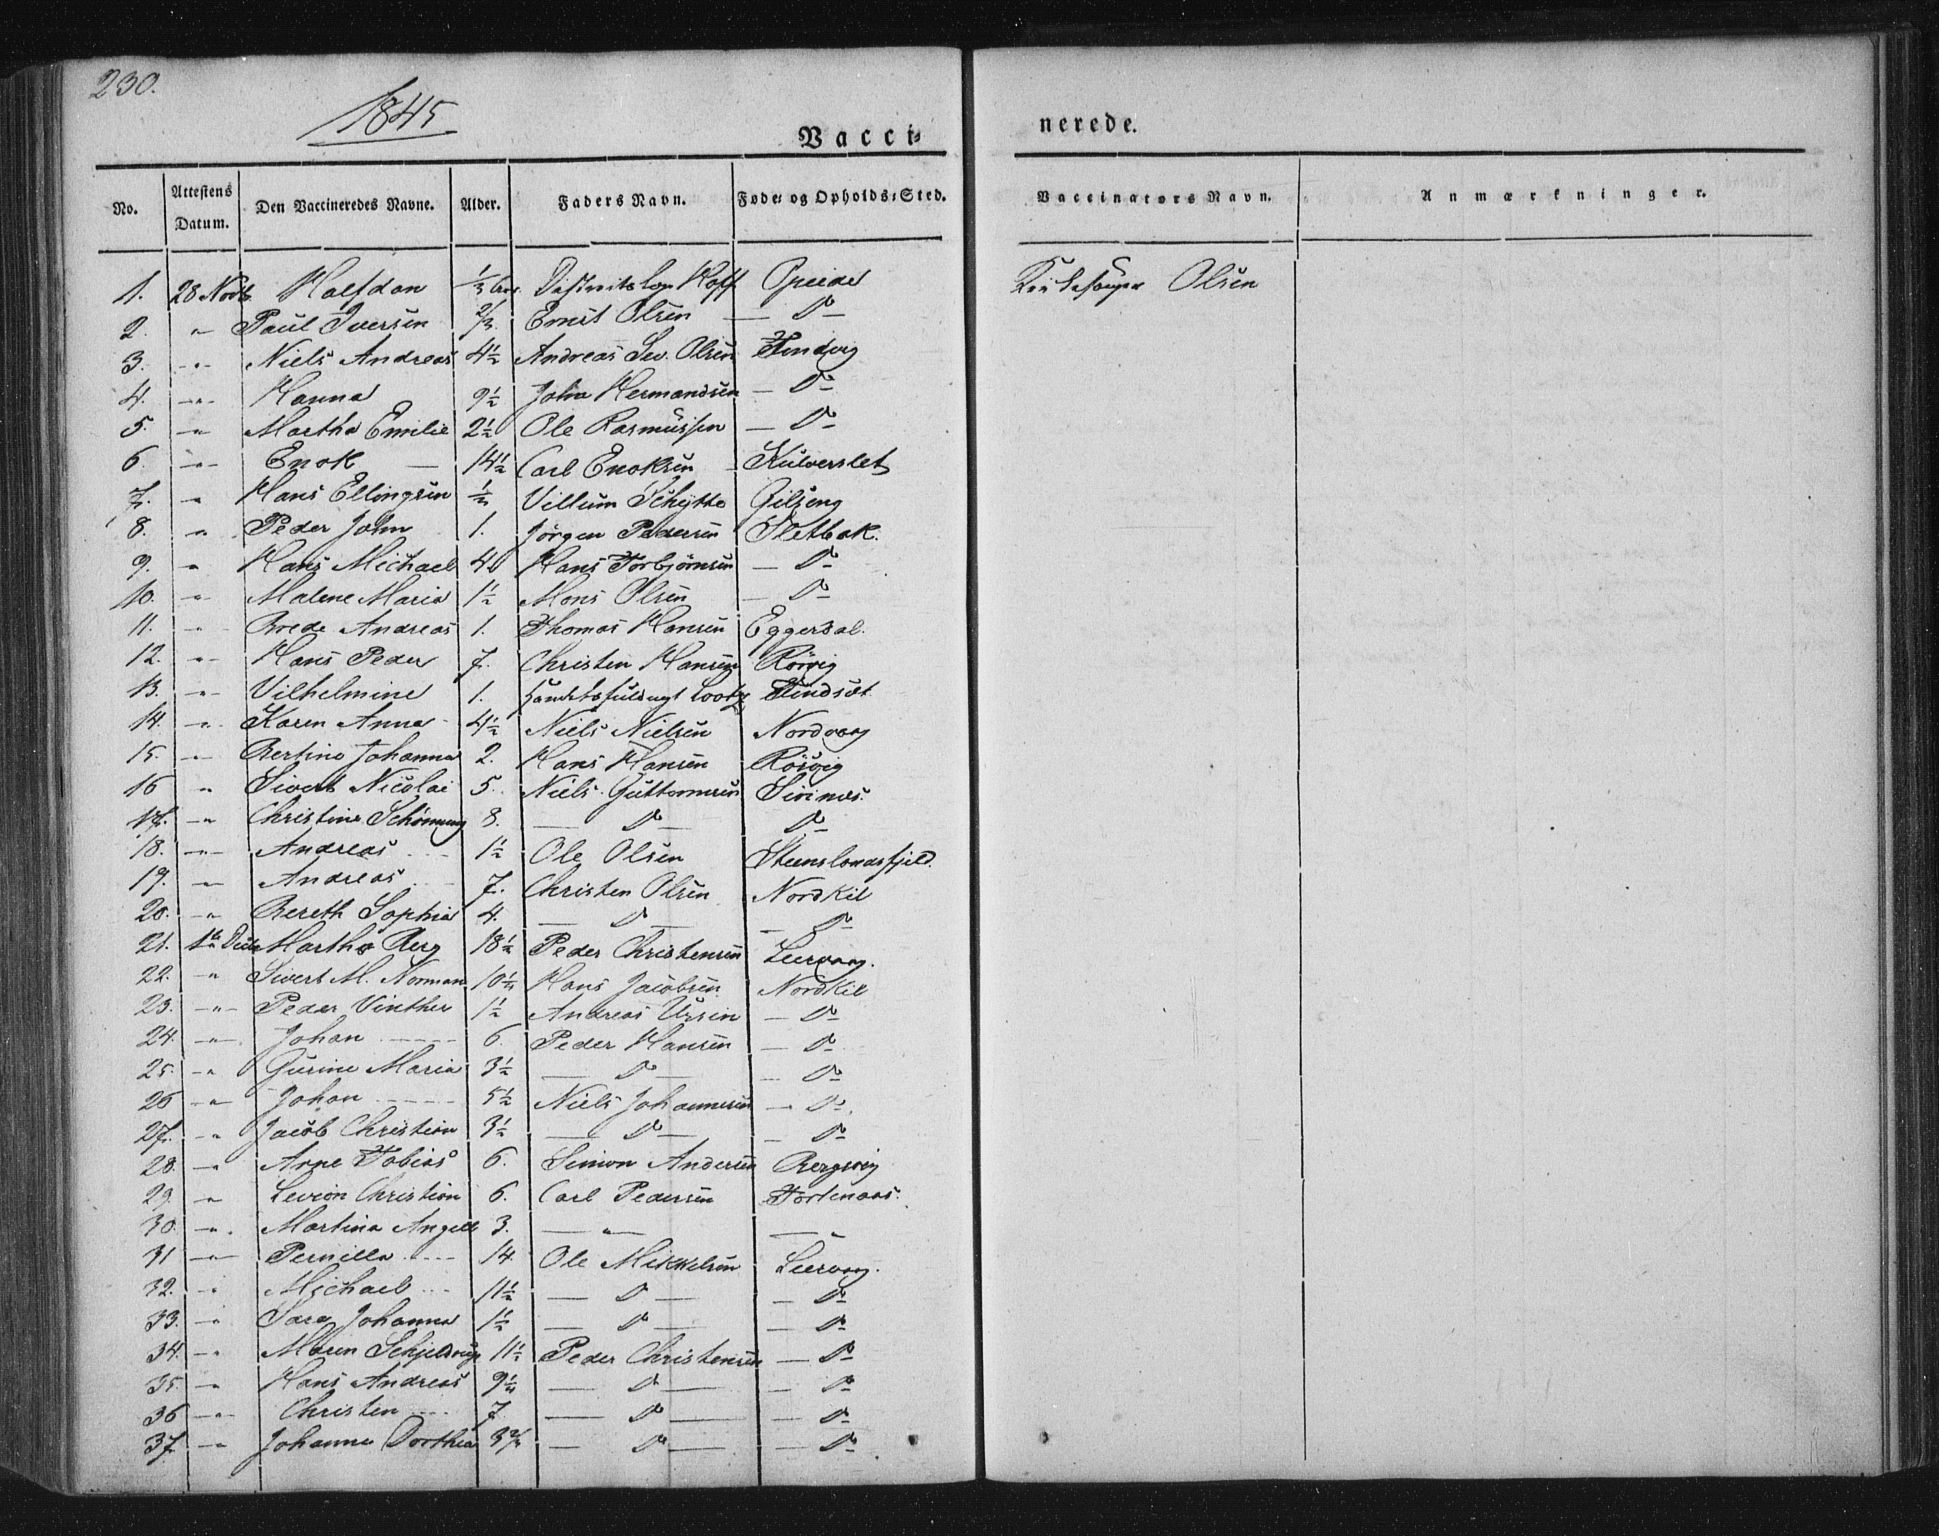 230.
1845
Vacci-
nerede.
No. Attestens Datum. Den Vaccineredes Navne. Alder. Faders Navn. Føde- og Opholds-Sted. Vaccinators Navn. Anmærkninger.
1. 28 Novbr Halfdan 1/3 Aar. Hoff Opeide Kirkesanger Olsen
2. " Paul Iversen 2/3. Ernst Olsen — Do —
3. -"- Niels Andreas 4½ Andreas Sev. Olsen
4. -"- Hanna 9½ John Hermandsen — Do
5. -"- Martha Emilie 2½ Ole Rasmussen — Do
6. -"- Enok — 14½ Carl Enoksen Kulverslet
7. -" Hans Ellingsen ½ Villum Schytte
8. " Peder John 1. Jørgen Pedersen Sletbak.
9. " Hans Michael 4 Hans Torbjørnsen — Do
10. " Malene Maria 1½ Mons Olsen — Do
11. " Brede Andreas 1. Thomas Hansen Eggesdal.
12. -"- Hans Peder 7. Christen Hansen Røsvig
13. -"- Vilhelmine 1.
14. -"- Karen Anna 4½ Niels Nielsen Nordvaag
15. -"- Bertine Johanna 2. Hans Hansen Røsvig
16 " Sivert Nicolai 5. Niels Guttormsen
17. -"- Christine Schønning 8. — Do — Do
18. -"- Andreas 1½ Ole Olsen Steenslandsfjeld.
19. -"- Andreas 7. Christen Olsen Nordkil
20. -" Bereth Sophia 4. — Do — — Do
21. Martha Berg 18½ Peder Christensen Leervaag.
22. -"- Sivert M. Norman Hans Jacobsen Nordkil
23. -"- Peder Vinther 1½ Andreas Ursin — Do
24. -"- Johan 6 Peder Hansen — Do
25. -" Gurine Maria 3½ — Do — — Do
26 -"- Johan 5½ Niels Johannesen — Do
27. -" Jacob Christian 3½ — Do — — Do
28. -" Arne Tobias 6. Simon Andersen Bergsvig
29. " Carl Pedersen
30. -". Martina Angell 3. — " — — " —
31 -"- Pernilla 14. Ole Mikkelsen Leervaag.
32. " Michael 11½ — Do — — Do
33. -"- Sara Johanna 1½ — Do — — Do
34. -"- Maren Schjeldrup 11½ Peder Christensen — Do
35. -" Hans Andreas — Do — — Do
36 -"- Christen 7. — Do — — Do
37. -"- Johanna Dorthea — Do — — Do